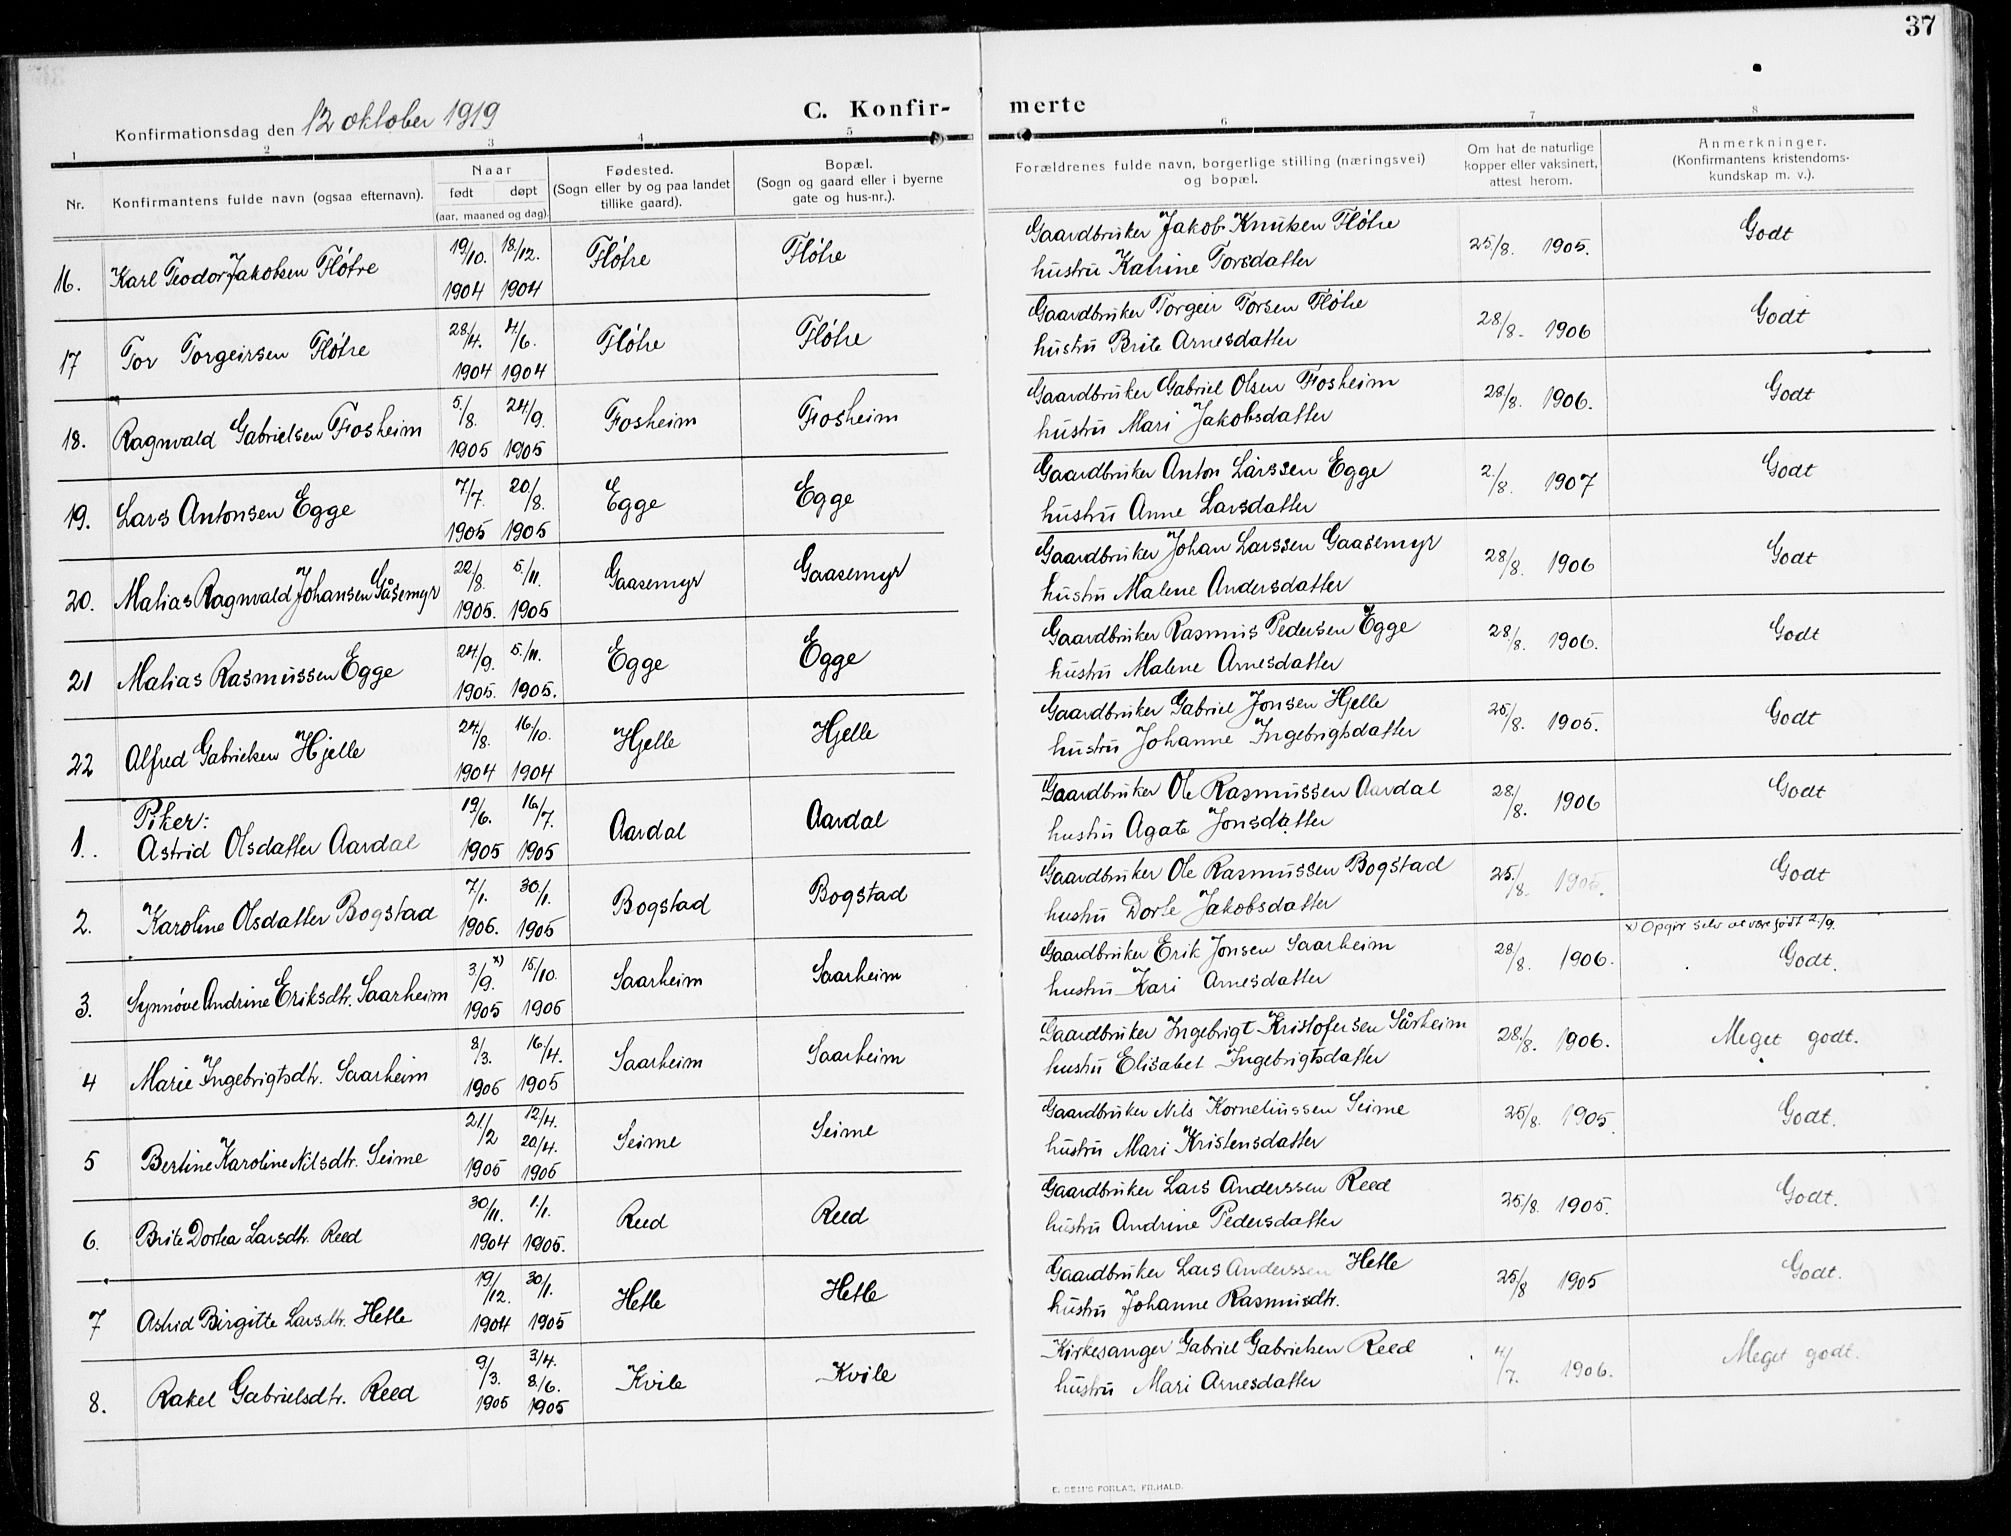 37
Konfirmationsdag den 12 oktober 1919
C. Konfir-merte
1 2 3 4 5 6 7 8
Nr. Konfirmantens fulde navn (ogsaa efternavn). Naar født døpt (aar, maaned og dag). Fødested. (Sogn eller by og paa landet tillike gaard). Bopæl. (Sogn og gaard eller i byerne gate og hus-nr.). Forældrenes fulde navn, borgerlige stilling (næringsvei) og bopæl. Om hat de naturlige kopper eller vaksinert, attest herom. Anmerkninger. (Konfirmantens kristendoms-kundskap m. v.).
16. Karl Teodor Jakobsen Fløtre 19/10. 1904 18/12. 1904 Fløtre Fløtre Gaardbruker Jakob Knutsen Fløtre 25/8. 1905. Godt
hustru Katrine Torsdatter
17 Tor Torgeirsen Fløtre 28/4. 1904 4/6. 1904 Fløtre Fløtre Gaardbruker Torgeir Torsen Fløtre 28/8. 1906 Godt
hustru Brite Arnesdatter
18. Ragnvald Gabrielsen Fosheim 5/8. 1905 24/9. 1905 Fosheim Fosheim Gaardbruker Gabriel Olsen Fosheim 28/8. 1906. Godt
hustru Mari Jakobsdatter
19. Lars Antonsen Egge 7/7. 1905 20/8. 1905 Egge Egge Gaardbruker Anton Larssen Egge 2/8. 1907 Godt
hustru Anne Larsdatter
20. Matias Ragnvald Johansen Gåsemyr 22/8. 1905. 5/11. 1905 Gaasemyr Gaasemyr Gaardbruker Johan Larssen Gaasemyr 28/8. 1906 Godt
hustru Malene Andersdatter
21 Matias Rasmussen Egge 24/9. 1905. 5/11. 1905. Egge Egge Gaardbruker Rasmus Pedersen Egge 28/8. 1906. Godt
hustru Malene Arnesdatter
22 Alfred Gabrielsen Hjelle 24/8. 1904 16/10. 1904 Hjelle Hjelle Gaardbruker Gabriel Jonsen Hjelle 25/8. 1905. Godt
hustru Johanne Ingebrigtsdatter
Piker:
1.. Astrid Olsdatter Aardal 19/6. 1905 16/7. 1905 Aardal Aardal Gaardbruker Ole Rasmussen Aardal 28/8. 1906 Godt
hustru Agate Jonsdatter
2. Karoline Olsdatter Bogstad 7/1. 1905. 30/1. 1905 Bogstad Bogstad Gaardbruker Ole Rasmussen Bogstad 25/8. 1905. Godt
hustru Dorte Jakobsdatter
x) Opgir selv at være født 2/9.
3. Synnøve Andrine Eriksdtr. Saarheim 3/9. x) 1905 15/10. 1905 Saarheim Saarheim Gaardbruker Erik Jonsen Saarheim 28/8. 1906. Godt.
hustru Kari Arnesdatter
4 Marie Ingebrigtsdtr. Saarheim 8/3. 1905 16/4. 1905 Saarheim Saarheim Gaardbruker Ingebrigt Kristofersen Sårheim 28/8. 1906. Meget godt.
hustru Elisabet Ingebrigtsdatter
5 Bertine Karoline Nilsdtr. Seime 21/2 1905 12/4. 20/4. 1905 Seime Seime Gaardbruker Nils Korneliussen Seime 25/8. 1905. Godt.
hustru Mari Kristensdatter
6. Brite Dortea Larsdtr. Reed 30/11. 1904 1/1. 1905. Reed Reed Gaardbruker Lars Anderssen Reed 25/8. 1905. Godt.
hustru Andrine Pedersdatter
7 Astrid Birgitte Larsdtr. Hetle 19/12. 1904 30/1. 1905 Hetle Hetle Gaardbruker Lars Anderssen Hetle 25/8 1905 Godt.
hustru Johanne Rasmusdtr.
8. Rakel Gabrielsdtr. Reed 9/3. 1905 3/4. 8/6. 1905 Kvile Kvile Kirkesanger Gabriel Gabrielsen Reed 4/7. 1906. Meget godt.
hustru Mari Arnesdatter
E. SEM'S FORLAG, FR.HALD.